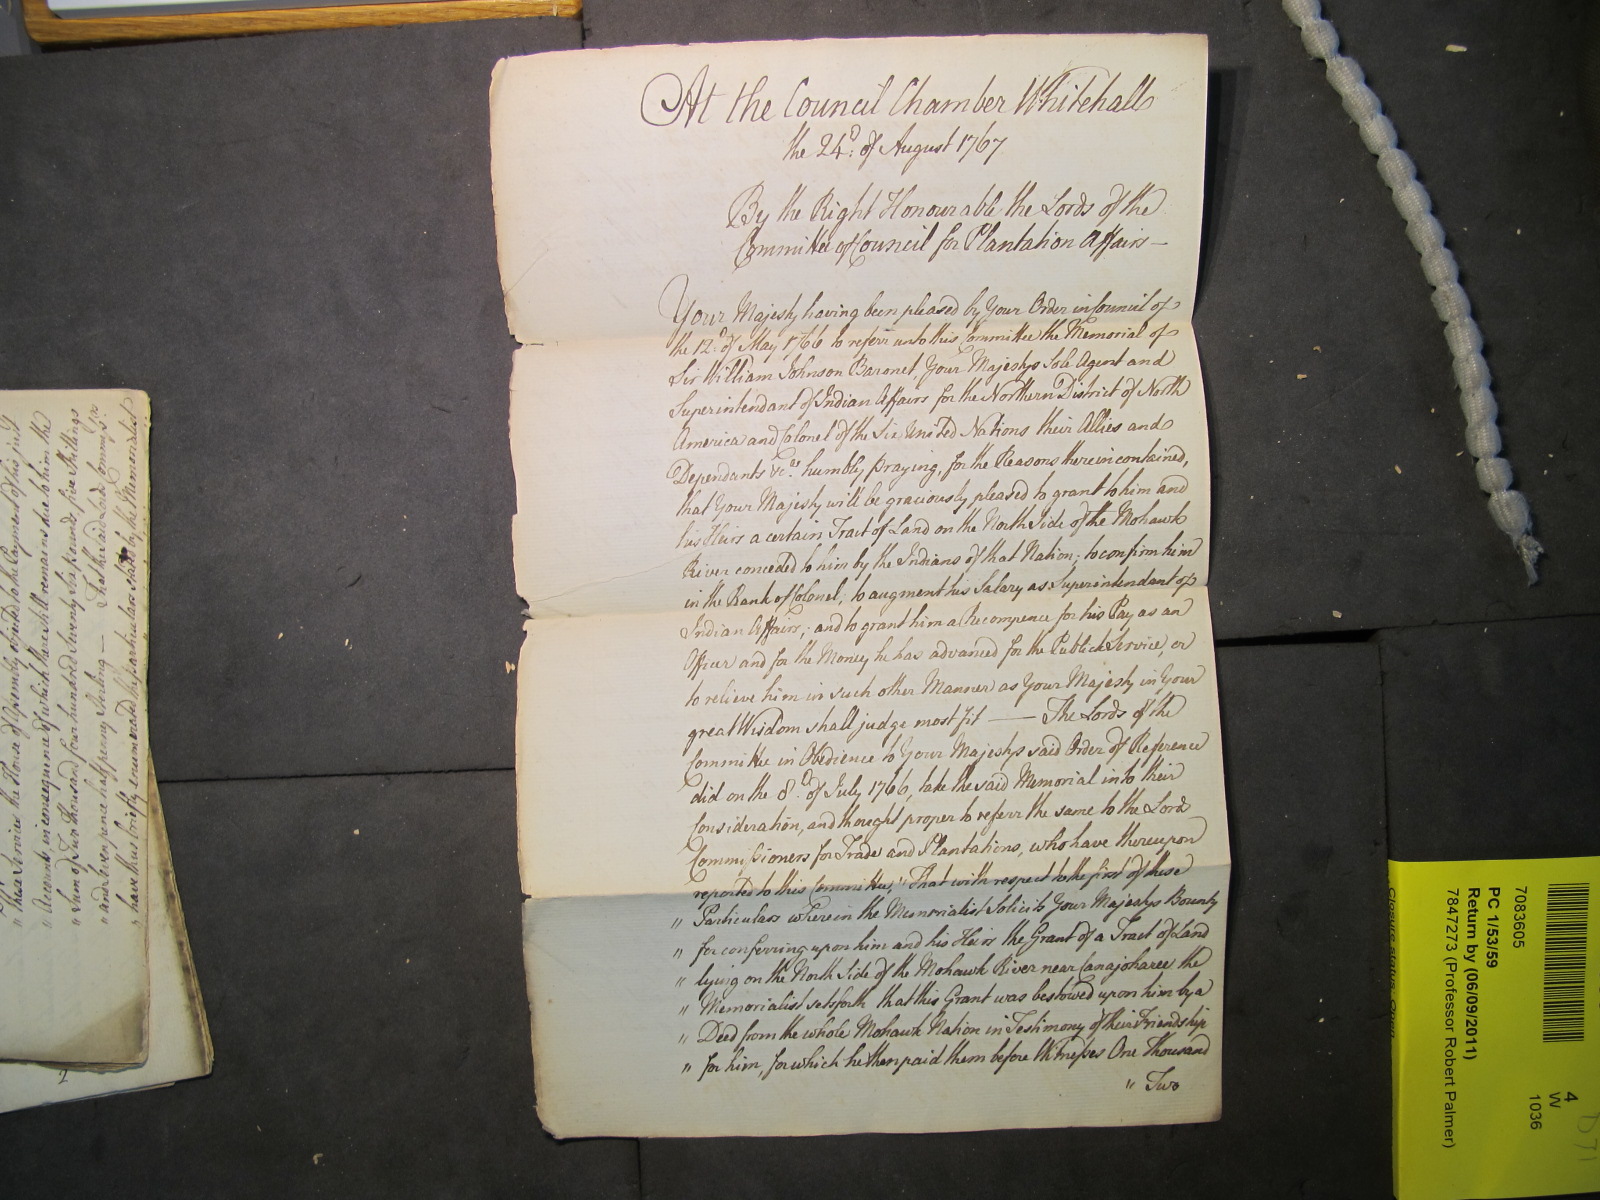 At the Council Chamber Whitehall
the 24.d of August 1767
By the Right Honourable the Lords of the
Committee of Council for Plantation Affairs —
Your Majesty having been pleased by Your Order in Council of
the 12.d of May 1766 to referr unto this Committee the Memorial of
Sir William Johnson Baronet, Your Majestys Sole Agent and
Superintendant of Indian Affairs for the Northern District of North
America and Colonel of the Six United Nations their Allies and
Dependants &c.a humbly praying, for the Reasons therein contained,
that Your Majesty will be graciously pleased to grant to him and
his Heirs a certain Tract of Land on the North Side of the Mohawk
River conceded to him by the Indians of that Nation; to confirm him
in the Rank of Colonel; to augment his Salary as Superintendant of
Indian Affairs; and to grant him a Recompence for his Pay as an
Officer and for the Money he has advanced for the Publick Service, or
to relieve him in such other Manner as Your Majesty in Your
great Wisdom shall judge most fit — The Lords of the
Committee in Obedience to Your Majestys said Order of Reference
did on the 8.th of July 1766, take the said Memorial into their
Consideration, and thought proper to referr the same to the Lord
Commissioners for Trade and Plantations, who have thereupon
reported to this Committee, "That with respect to the first of these
" Particulars wherein the Memorialist Solicits Your Majestys Bounty
" for conferring upon him and his Heirs the Grant of a Tract of Land
" lying on the North Side of the Mohawk River near Canajoharee the
" Memorialist sets forth that this Grant was bestowed upon him by a
" Deed from the whole Mohawk Nation in Testimony of their Friendship
" for him, for which he then paid them before Witnesses One Thousand
" Two
" these Services the House of Assembly objected to the Payment of his just
" Accounts, in consequence of which there still remains due to him the
" Sum of Two thousand four hundred Seventy Six pounds five Shillings
" and eleven pence half penny Sterling — That the said Lords Commiss.rs
" have thus briefly enumerated the particulars stated by the Memorialist
2
7083605
PC 1/53/59
Return by (06/09/2011)
7847273 (Professor Robert Palmer)
Closure status: Open
4
W
1036